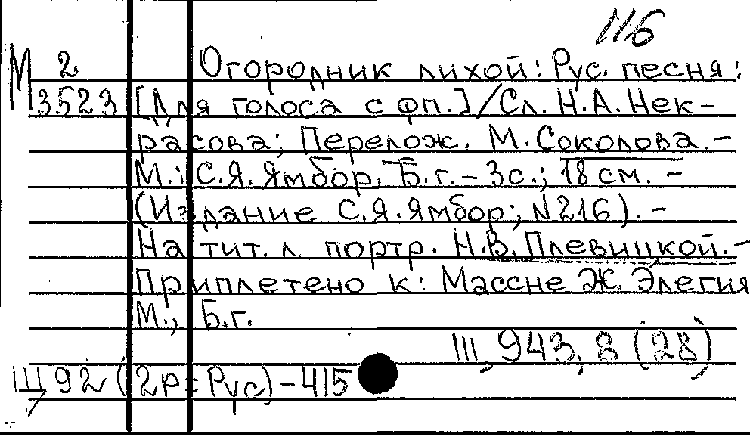 116
М 2 Огородник лихой: Рус. песня:
3523 [Для голоса с фп.]/Сл. Н.А. Нек-
расова; Перелож. М. Соколова. -
М.: С.Я. Ямбор, Б.г. - 3с.; 18 см. -
(Издание С.Я. Ямбор; N216). -
На тит. л. портр. Н.В. Плевицкой. -
Приплетено к: Массне Ж. Элегия
М., Б.г.
III, 943, 8 (28)
Щ 92 (2Р=Рус) - 415